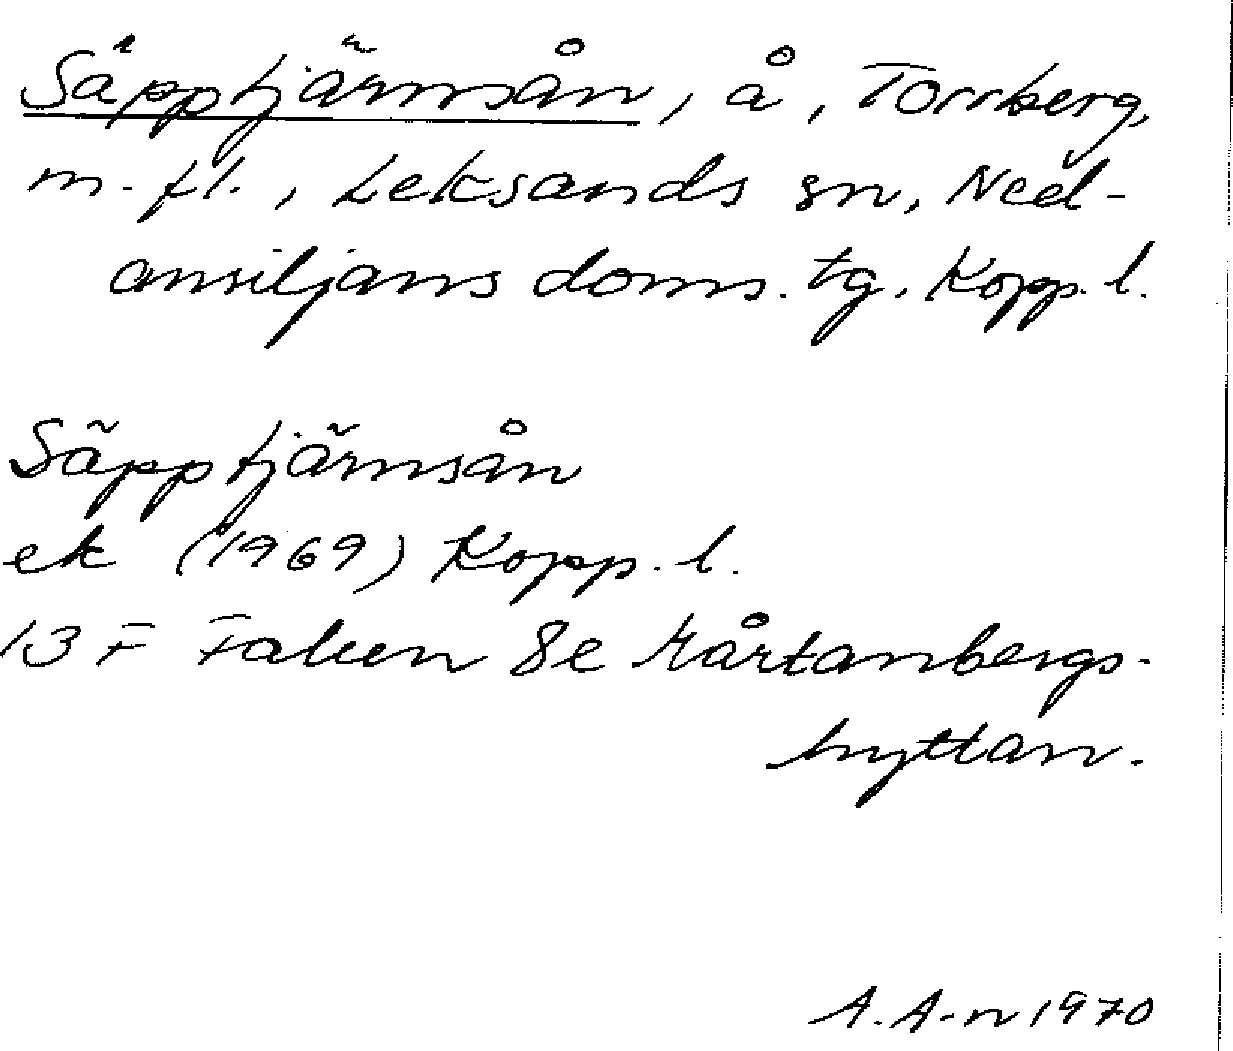 Säpptjärnsån, å, Torrberg,
m. fl., Leksands sn, Ned-
ansiljans doms. tg. Kopp. l.
Säpptjärnsån
ek (1969) Kopp. l.
13 F Falun 8e Mårtanbergs-
hyttan.
A. A-n 1970